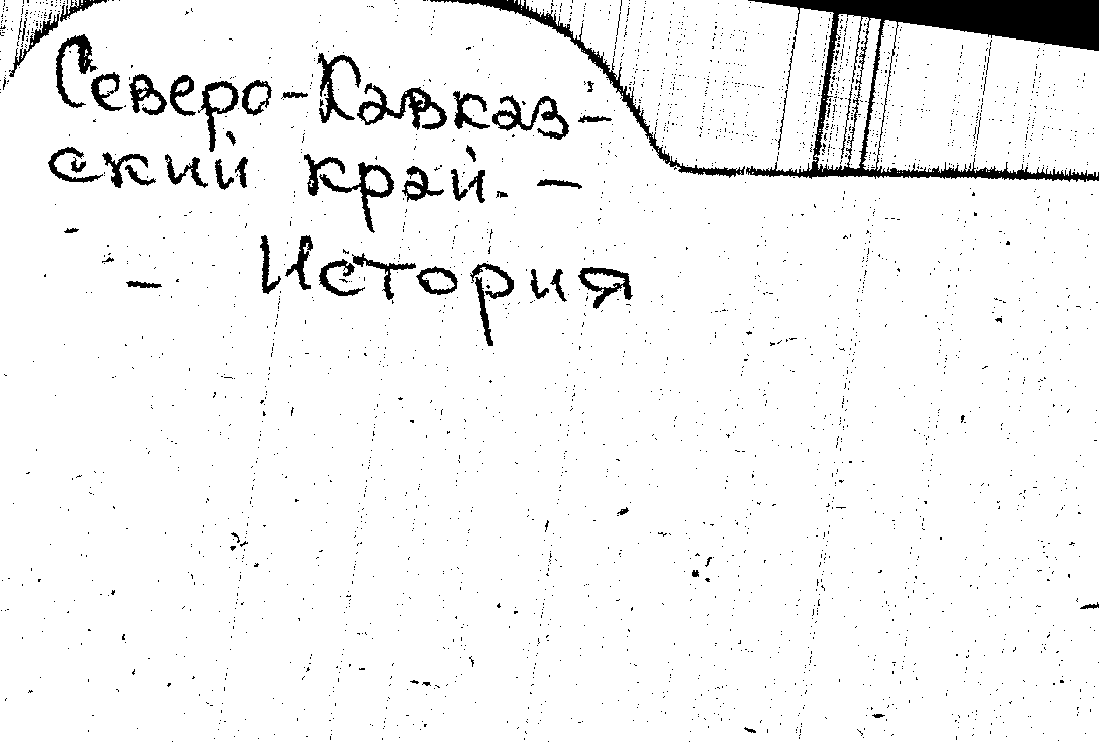 Северо-Кавказ-
ский край. -
- История